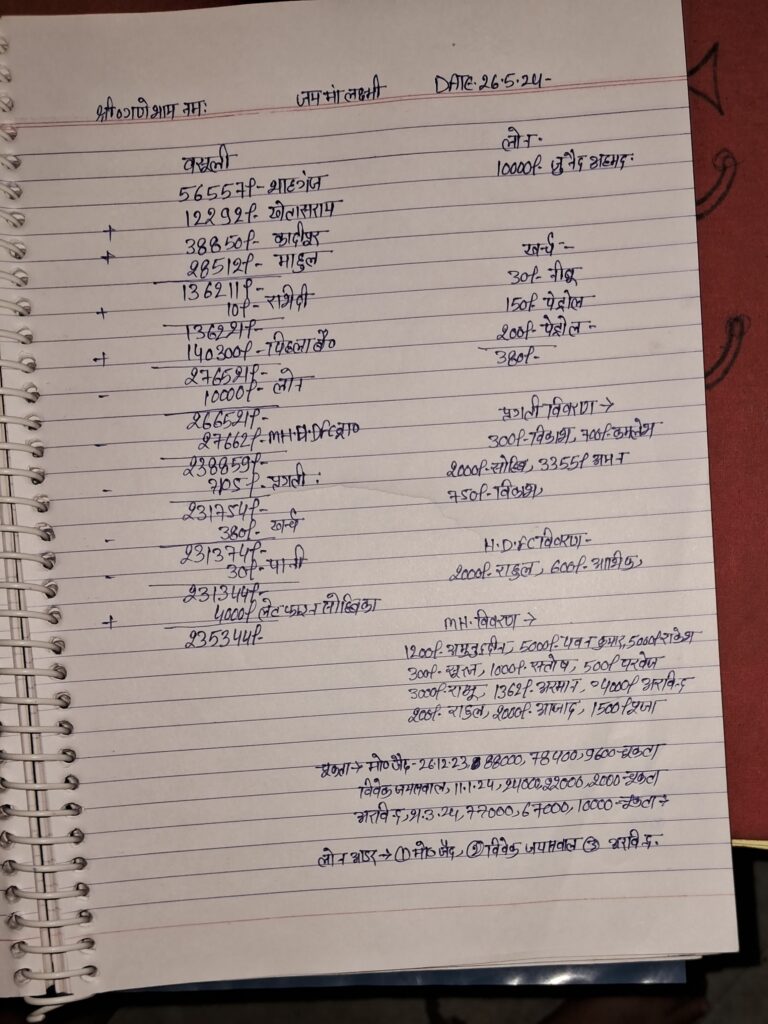 श्री गणेशाय नमः जय मां लक्ष्मी DATE: 26.5.24-
वसूली
56557/- शाहगंज
12292/- खेतासराय
+ 38850/- कादीपुर
+ 28512/- माहुल
136211/-
+ 10/- रसीदी
136221/-
+ 140300/- पिछला बै०
276521/-
- 10000/- लोन
266521/-
- 27662/- MH.H.DFC
238859/-
- 7105/- प्रगती :
231754/-
- 380/- खर्च
231374/-
- 30/- पानी
231344/-
+ 4000/- लेट फाइन मोबिका
235344/-
लोन-
10000/- जुनैद अहमद-
खर्च :-
30/- नीबू
150/- पेट्रोल
200/- पेट्रोल -
380/-
प्रगती विवरण →
300/- विकाश, 700/- कमलेश
2000/- मोबिन, 3355/ अमन
750/- विकाश,
H.D.FC विवरण-
2000/- राहुल, 600/- आशिक,
MH. विवरण →
1200/- अमुनुद्दीन, 5000/- पवन कुमार, 5000/- राकेश
300/- सूरज, 1000/- सन्तोष, 500/ परवेज
3000/- राजू, 1362/ अरमान, 4000/ अरविन्द
200/- राहुल, 2000/- आजाद, 1500/ पूजा
चुकता → मो० जैद - 26.12.23, 88000, 78400, 9600- चुकता
विवेक जयसवाल, 11.1.24, 24000, 22000, 2000- चुकता
अरविन्द, 21.3.24, 77000, 67000, 10000- चुकता →
लोन आडर → ① मो० जैद, ② विवेक जयसवाल ③ अरविन्द.